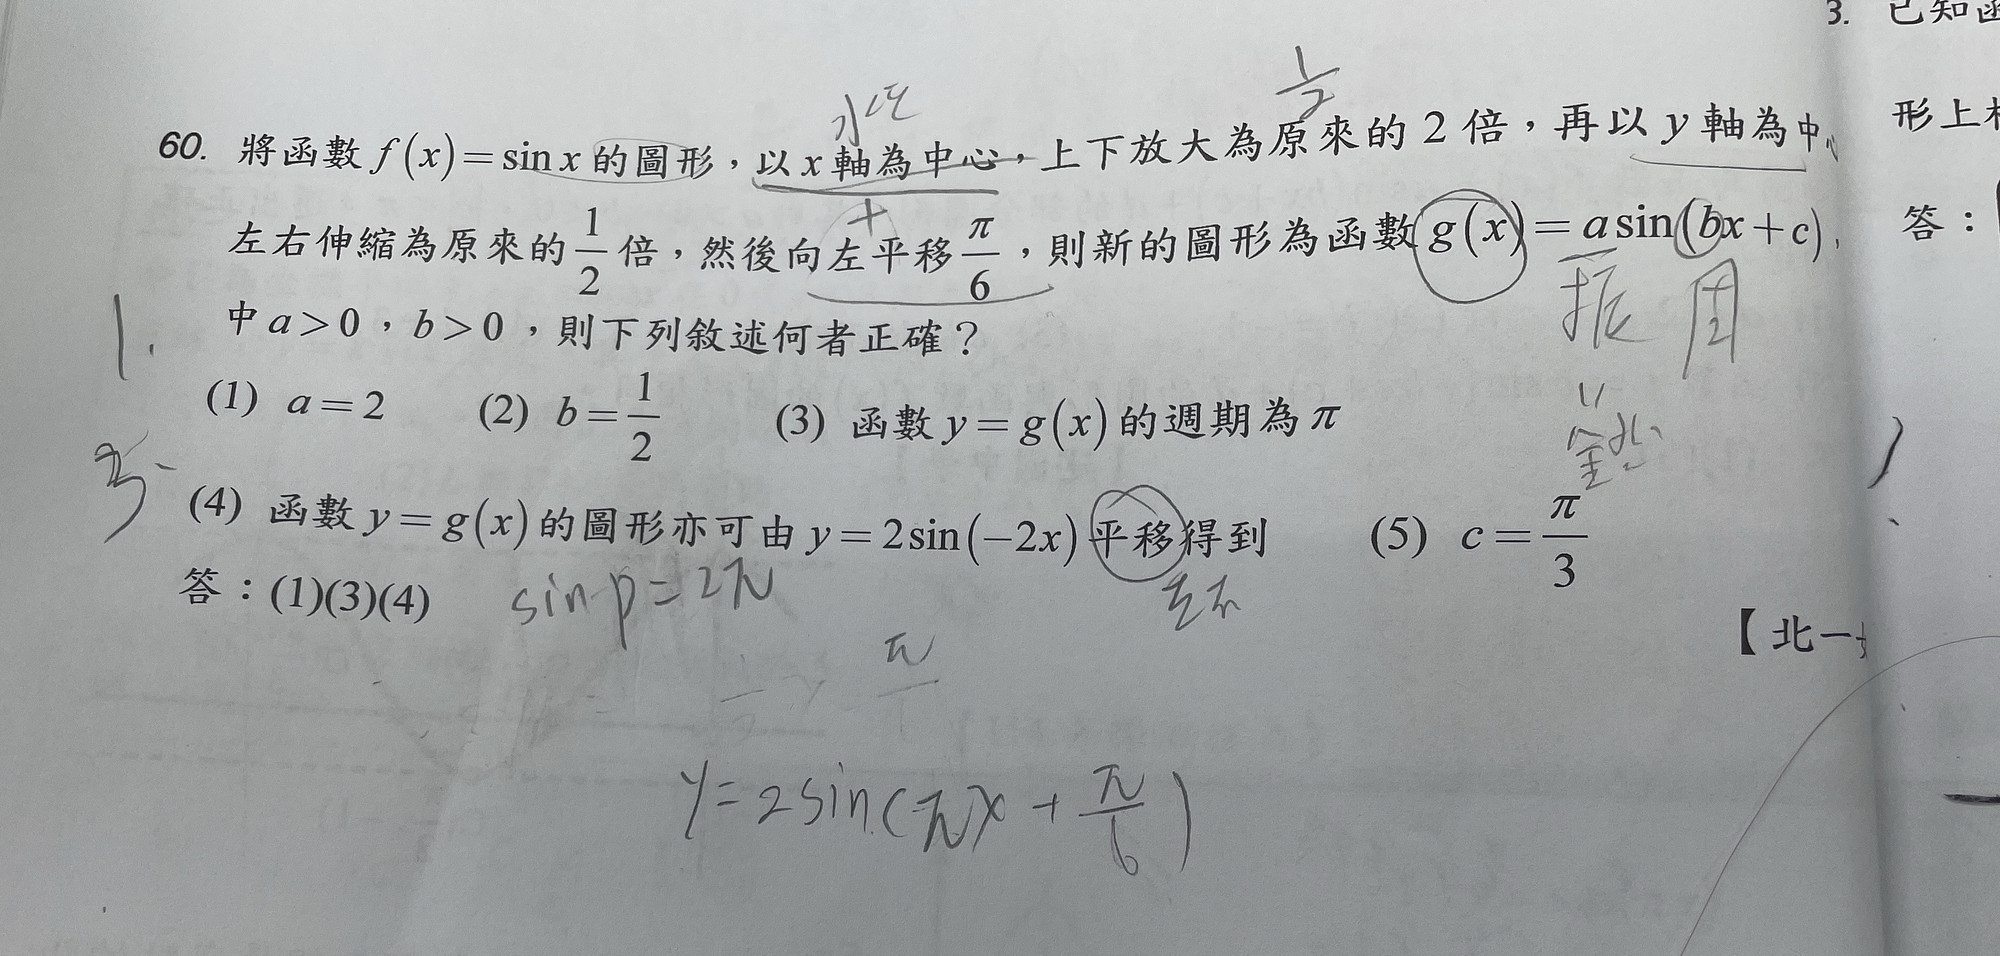 3. 已知函
水平
1/2
60. 將函數 f(x)=sin x 的圖形，以 x 軸為中心，上下放大為原來的 2 倍，再以 y 軸為中心
形上
+
左右伸縮為原來的 1/2 倍，然後向左平移 π/6，則新的圖形為函數 g(x)=a sin(bx+c)，
答：
振 周
中 a>0，b>0，則下列敘述何者正確？
1.
(1) a=2 (2) b=1/2 (3) 函數 y=g(x) 的週期為 π
3.
(4) 函數 y=g(x) 的圖形亦可由 y=2sin(−2x) 平移得到 (5) c=π/3
左右
答：(1)(3)(4) sin p=2π
【北一
π
y=2sin(πx+π/6)